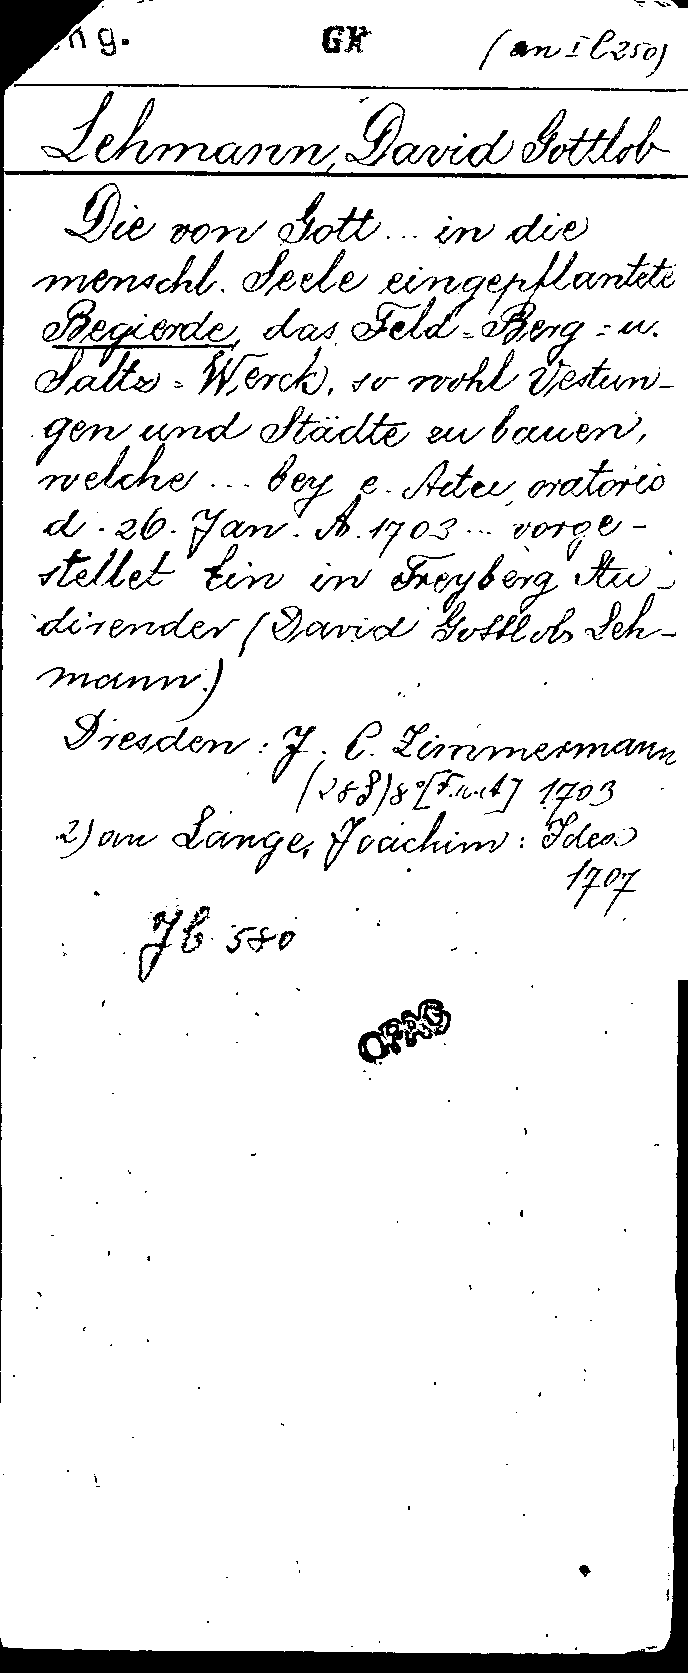 ng. GK (an I C 250)
Lehmann, David Gottlob
Die von Gott ... in die
menschl. Seele eingepflantete
Begierde, das Feld=Berg=u.
Saltz=Werck, so wohl Vestun-
gen und Städte zu bauen,
welche ... bey e. Actu oratorio
d. 26. Jan. A. 1703 ... vorge-
stellet Ein in Freyberg Stu-
dirender (David Gottlob Leh-
mann.)
Dresden: J. C. Zimmermann
8° 1703
2) an Lange, Joachim: Idea
1707
Jb 580
OPAG